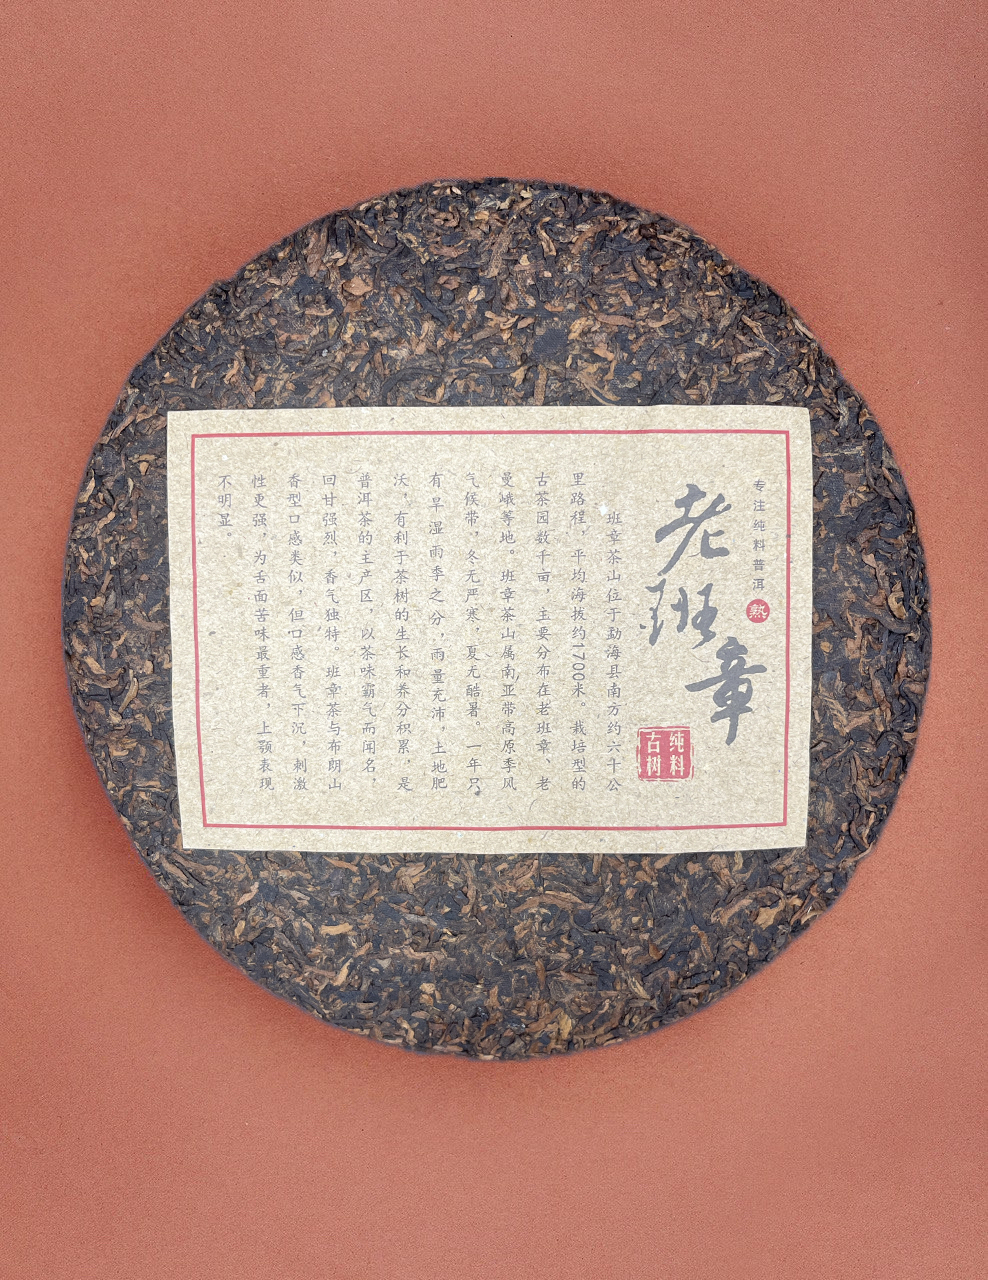 专注纯料普洱
熟
老班章
纯料
古树
班章茶山位于勐海县南方约六十公
里路程，平均海拔约1700米。栽培型的
古茶园数千亩，主要分布在老班章、老
曼峨等地。班章茶山属南亚带高原季风
气候带，冬无严寒，夏无酷暑。一年只
有旱湿雨季之分，雨量充沛，土地肥
沃，有利于茶树的生长和养分积累 是
普洱茶的主产区，以茶味霸气而闻名，
回甘强烈，香气独特。班章茶与布朗山
香型口感类似，但口感香气下沉，刺激
性更强，为舌面苦味最重者，上颚表现
不明显。